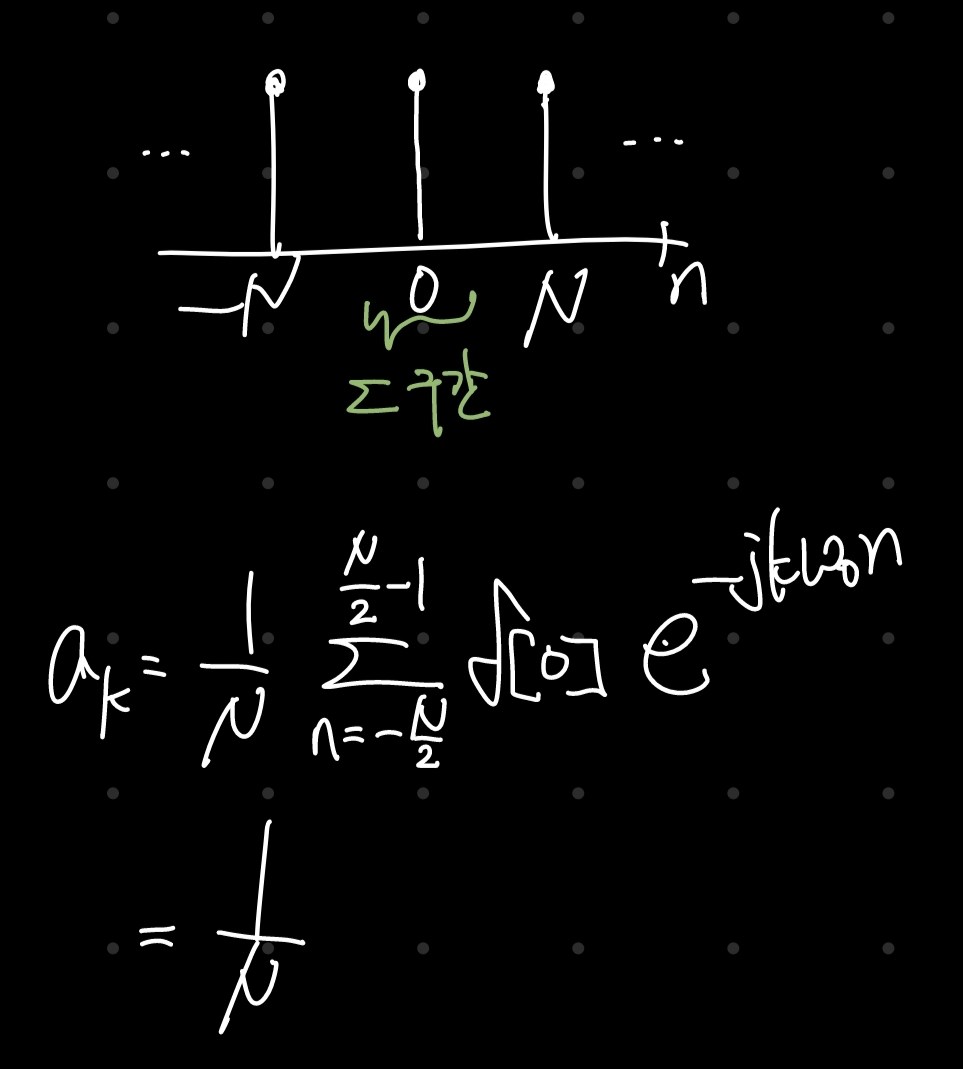 ... ...
-N 0 N n
Σ 구간
a_k = 1/N Σ_{n=-N/2}^{N/2-1} δ[0] e^{-jkω₀n}
= 1/N